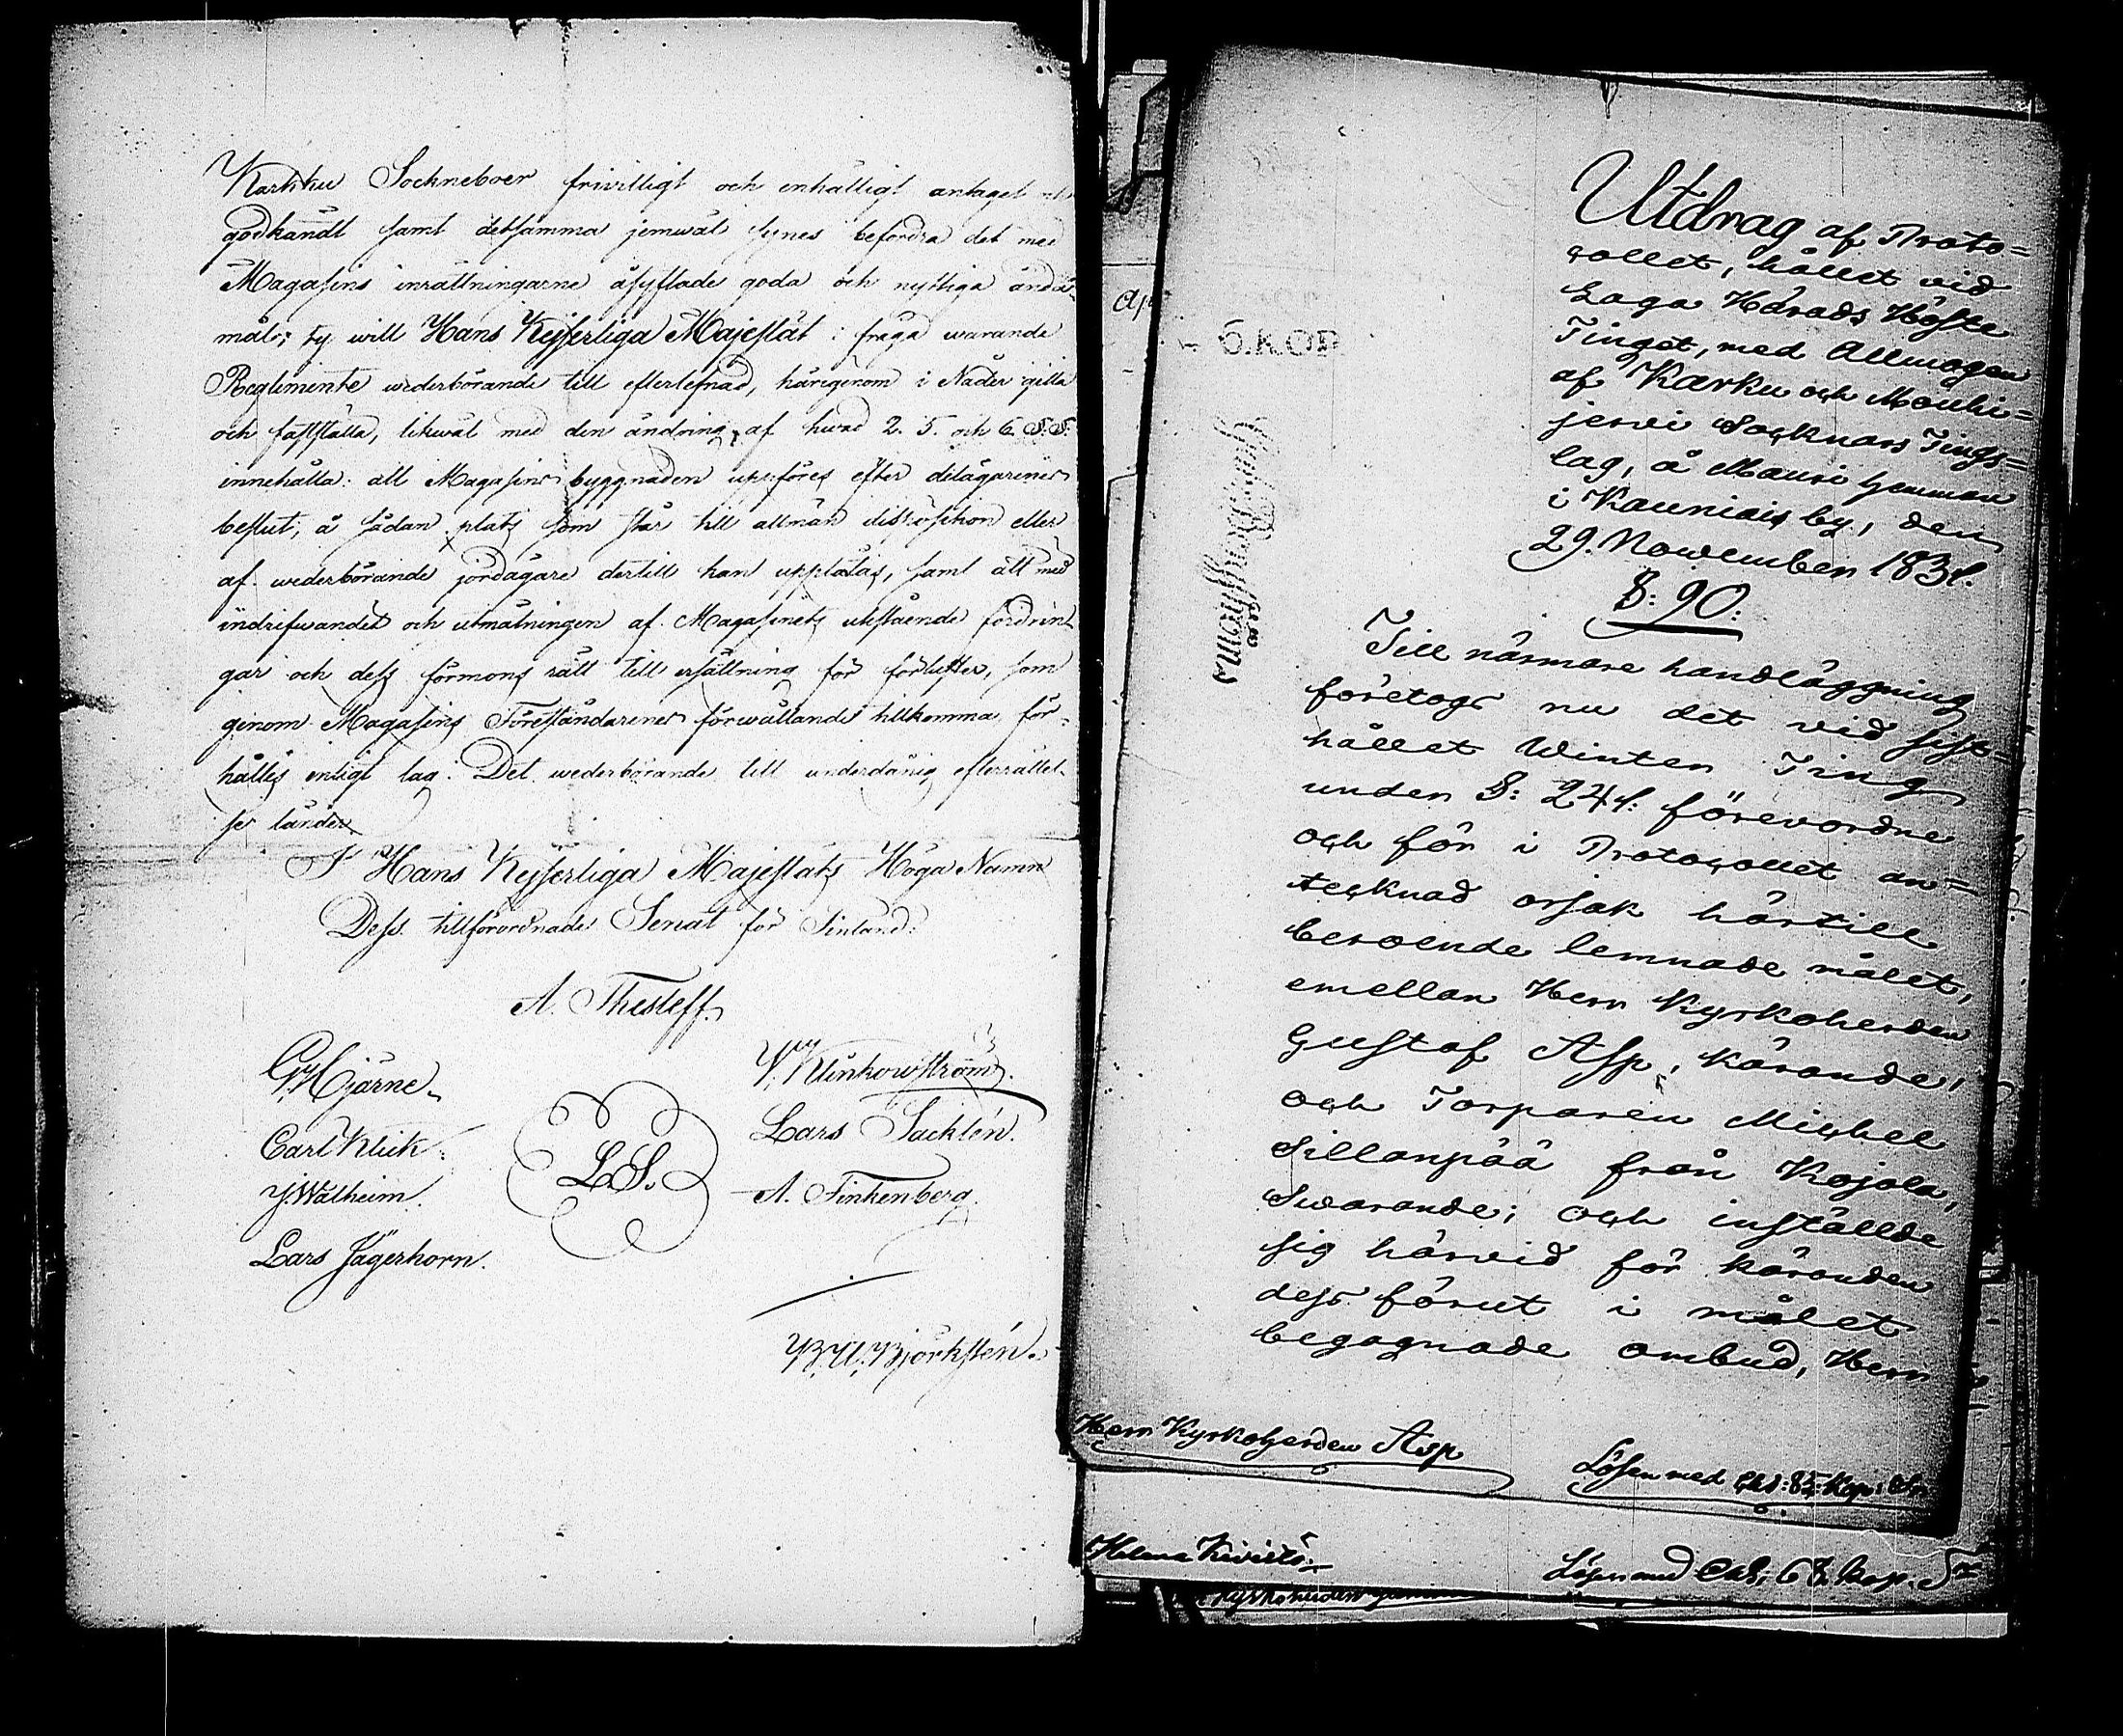 Karkku Sockneboer frivilligt och enhälligt antaget och
godkändt samt detsamma jemwäl synes befordra det med
Magasins inrättningarne åsyftade goda och nyttiga ända-
mål; ty will Hans Kejserliga Majestät i fråga warande
Reglemente wederbörande till efterlefnad, härigenom i Nåder gilla
och fastställa, likwäl med den ändring af hwad 2. 5. och 6. §.§.
innehålla: att Magasins byggnaden uppföres efter delägarenes
beslut, å sådan plats som står till allmän disposition eller
af wederbörande jordägare dertill kan upplåtas, samt att med
indrifwandet och utmätningen af Magasinets utestående fordrin-
gar och dess förmons rätt till ersättning för förluster, som
genom Magasins Föreståndarenes förwållande tillkomma, för-
hålles enligt lag. Det wederbörande till underdånig efterrättel-
se länder.
I Hans Kejserliga Majestäts Höga Namn
Dess tillförordnade Senat för Finland:
A. Thesleff.
G. Hjärne.
V. Klinkowström.
Carl Klick.
Lars Sacklén.
L.S.
J. Walheim.
A. Finkenberg.
Lars Jägerhorn.
B. U. Björkstén.
6.KOP.
Utdrag af Proto=
collet, hållet vid
Laga Härads Höste
Tinget, med Allmogen
af Karku och Mouhi=
jerwi Socknars Tings=
lag, å Mauri hemman
i Kauniais by, den
29. November 1834.
§: 90:
Till närmare handläggning
företogs nu det vid sist=
hållet Winter Ting
under §: 244: förevordne
och för i Protocollet an=
tecknad orsak härtill
beroende lemnade målet,
emellan Herr Kyrkoherden
Gustaf Asp, kärande,
och Torparen Michel
Sillanpää från Kojola,
Swarande; och inställde
sig härvid för käranden
dess förut i målet
begagnade ombud, Herr
Herr Kyrkoherden Asp
Lösen med
Helena Kivistö
Lösen med